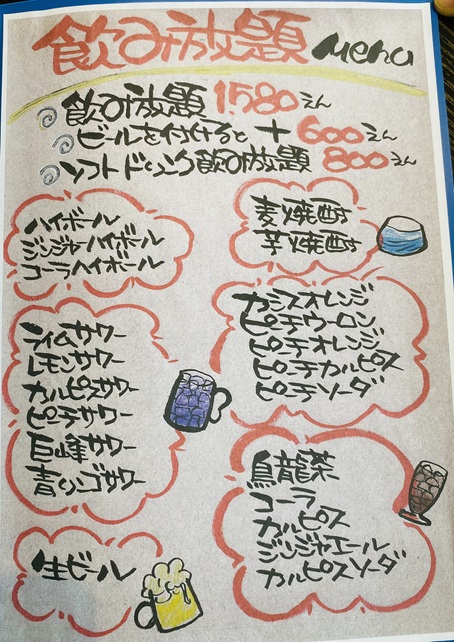 飲み放題 Menu
飲み放題 1580えん
ビールを付けると + 600えん
ソフトドリンク飲み放題 800えん
ハイボール
ジンジャーハイボール
コーラハイボール
麦焼酎
芋焼酎
ライムサワー
レモンサワー
カルピスサワー
ピーチサワー
巨峰サワー
青リンゴサワー
カシスオレンジ
ピーチウーロン
ピーチオレンジ
ピーチカルピス
ピーチソーダ
烏龍茶
コーラ
カルピス
ジンジャエール
カルピスソーダ
生ビール